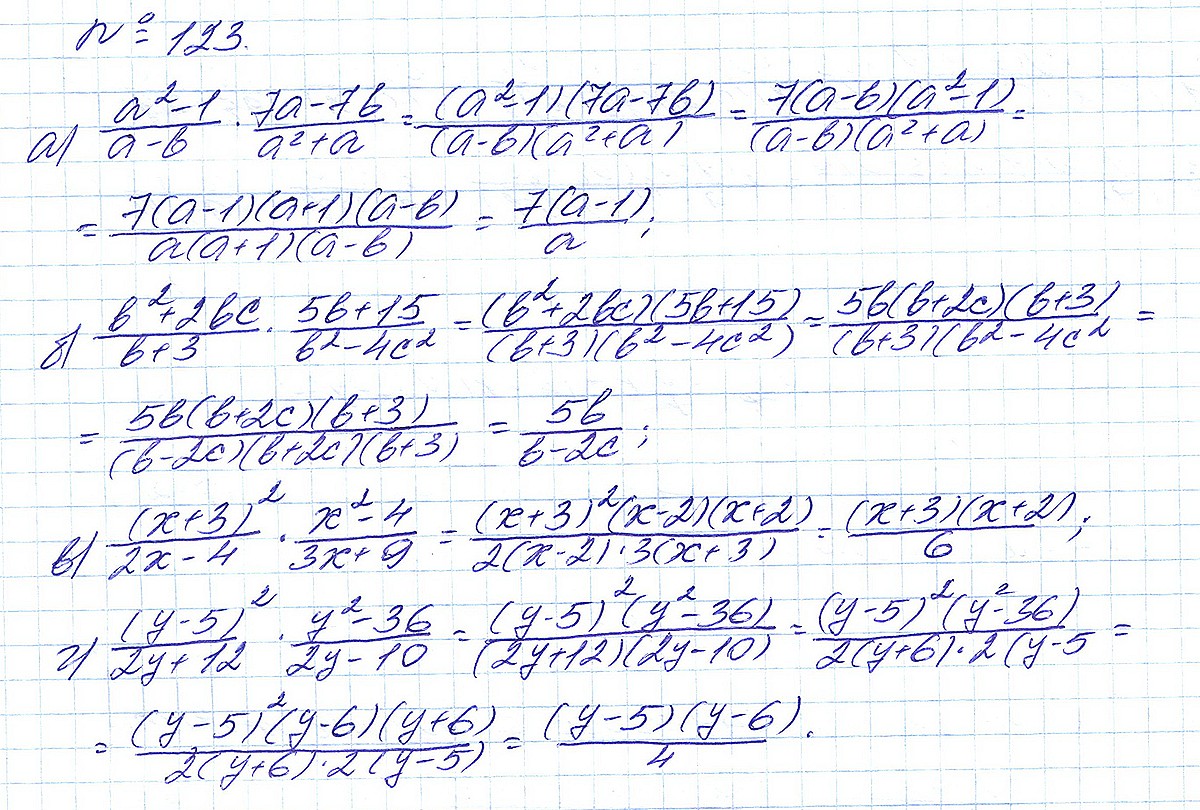 № 123.
а) \frac{a^2-1}{a-b} · \frac{7a-7b}{a^2+a} = \frac{(a^2-1)(7a-7b)}{(a-b)(a^2+a)} = \frac{7(a-b)(a^2-1)}{(a-b)(a^2+a)} =
= \frac{7(a-1)(a+1)(a-b)}{a(a+1)(a-b)} = \frac{7(a-1)}{a};
б) \frac{b^2+2bc}{b+3} · \frac{5b+15}{b^2-4c^2} = \frac{(b^2+2bc)(5b+15)}{(b+3)(b^2-4c^2)} = \frac{5b(b+2c)(b+3)}{(b+3)(b^2-4c^2} =
= \frac{5b(b+2c)(b+3)}{(b-2c)(b+2c)(b+3)} = \frac{5b}{b-2c};
в) \frac{(x+3)^2}{2x-4} · \frac{x^2-4}{3x+9} = \frac{(x+3)^2(x-2)(x+2)}{2(x-2)·3(x+3)} = \frac{(x+3)(x+2)}{6};
г) \frac{(y-5)^2}{2y+12} · \frac{y^2-36}{2y-10} = \frac{(y-5)^2(y^2-36)}{(2y+12)(2y-10)} = \frac{(y-5)^2(y^2-36)}{2(y+6)·2(y-5} =
= \frac{(y-5)^2(y-6)(y+6)}{2(y+6)·2(y-5)} = \frac{(y-5)(y-6)}{4}.